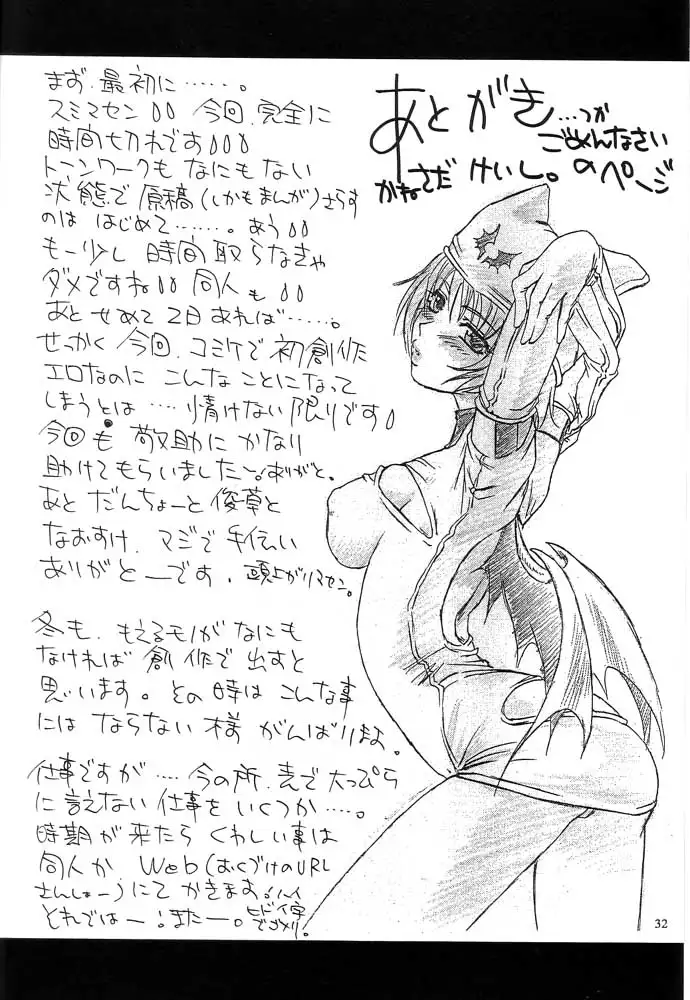 あとがき…つか
ごめんなさい
のページ
かねさだ けいし。
まず、最初に……。
スミマセン 今回、完全に
時間切れです
トーンワークもなにもない
状態で原稿(しかもまんが)さらす
のは はじめて……。あう
もー少し 時間取らなきゃ
ダメですね 同人も
あと せめて 2日あれば……。
せっかく 今回、コミケで初創作
エロなのに こんなことになって
しまうとは… 情けない限りです
今回も 敬助にかなり
助けてもらいました〜。ありがと。
あと だんちょーと 俊草と
なおすけ、マジで手伝い
ありがとーです。頭上がりマセン。
冬も、もえるモノがなにも
なければ 創作で出すと
思います。その時は こんな事
にはならない様 がんばりまよ。
仕事ですが… 今の所、表で大っぴら
に言えない仕事をいくつか…。
時期が来たら くわしい事は
同人か、Web(おくづけのURL
さんしょー)にてかきます!ハイ
それではー!またー。ヒドイ字
でゴメリ!
32